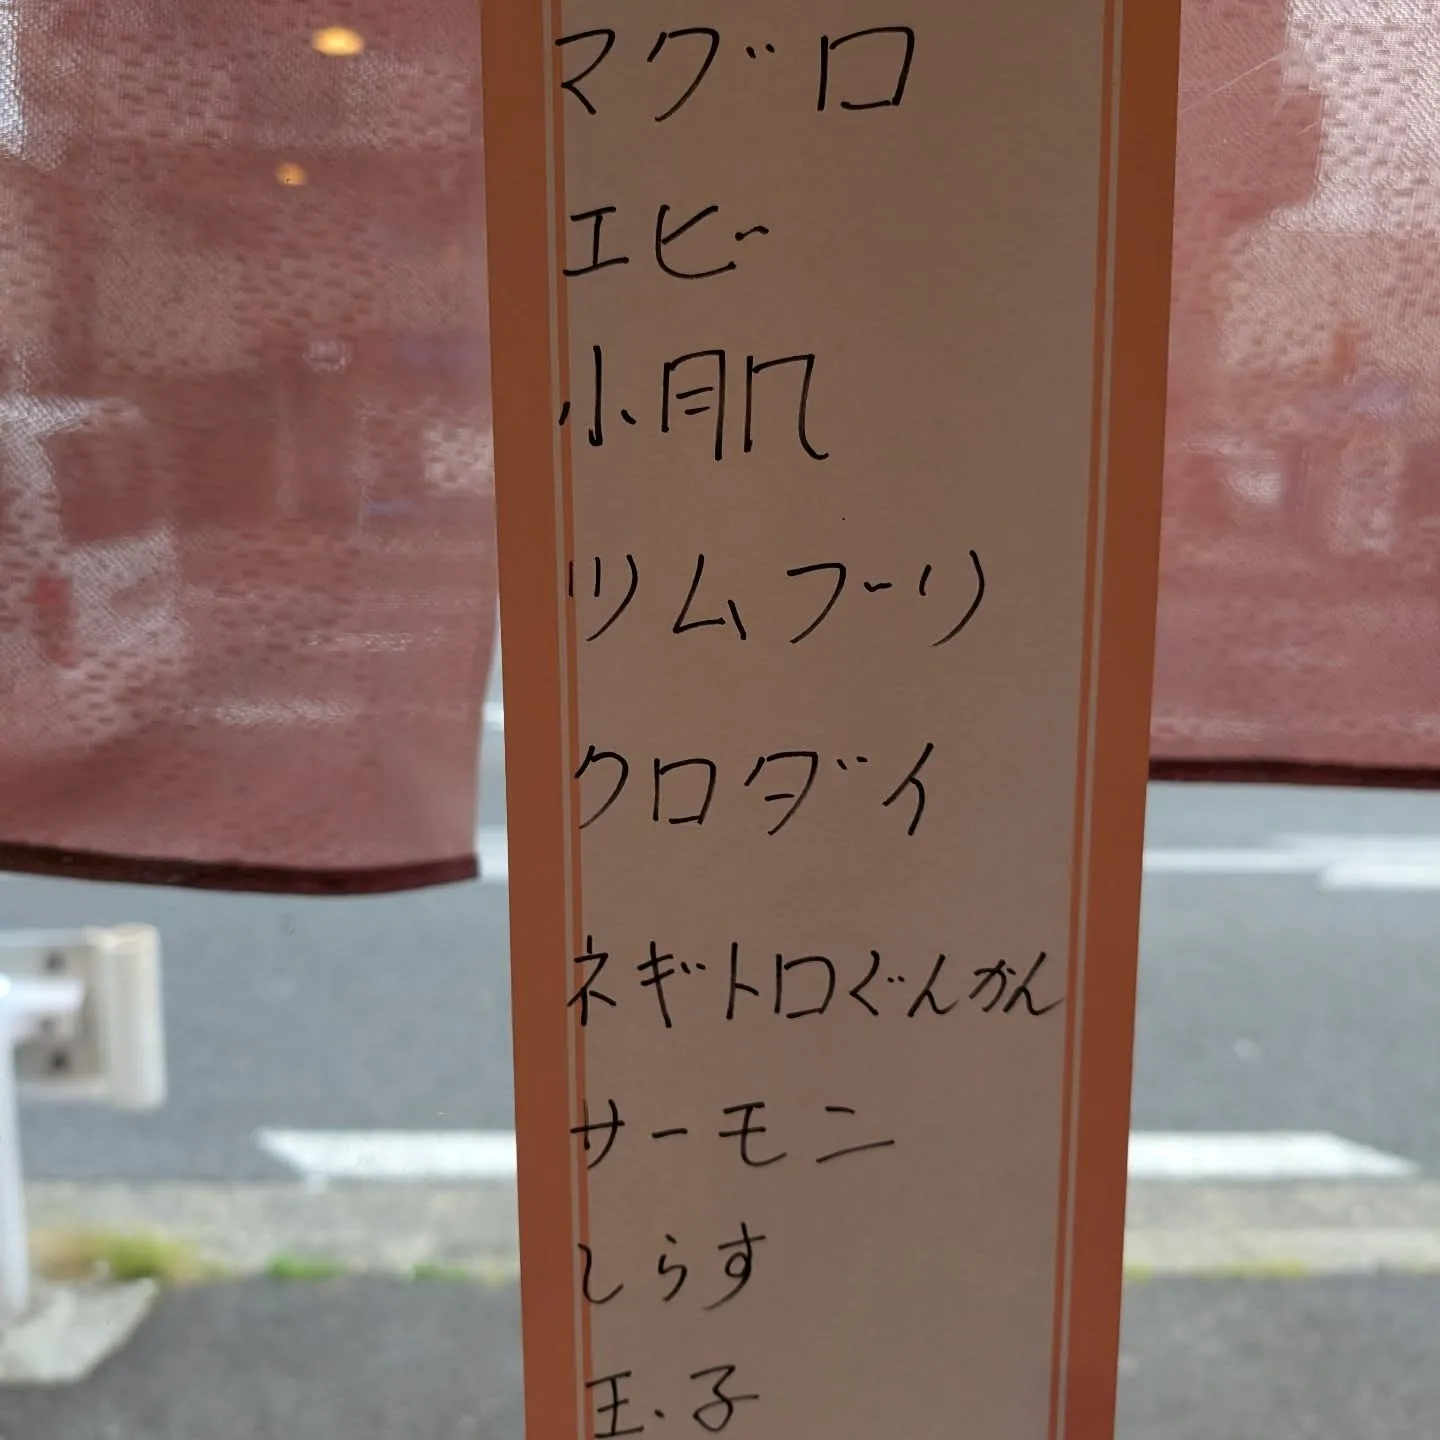 マグロ
エビ
小肌
ツムブリ
クロダイ
ネギトロぐんかん
サーモン
しらす
玉子